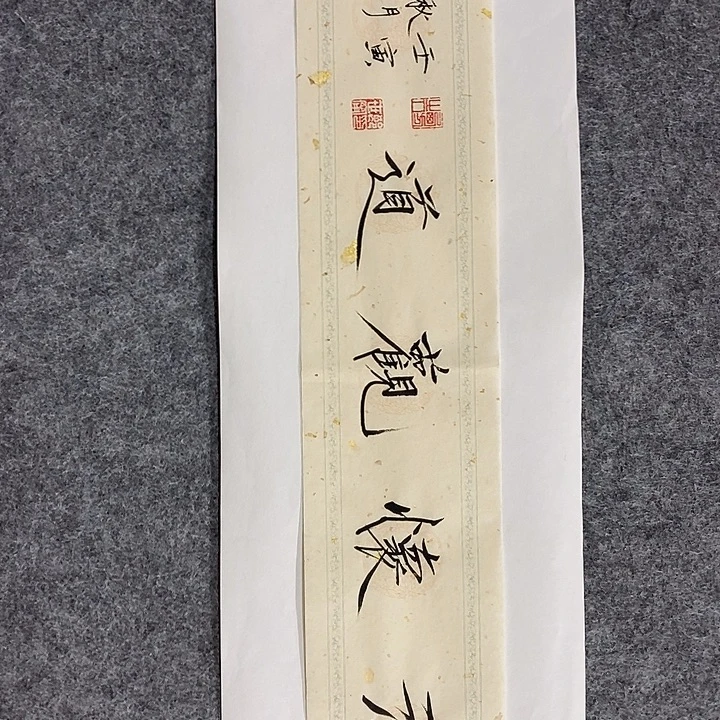 懷觀道
壬寅
秋月